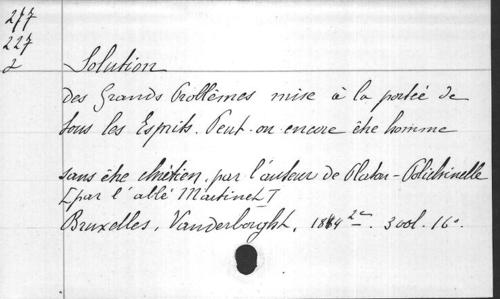 277
227
2
Solution
des Grands Problèmes mise à la portée de
tous les Esprits. Peut-on encore être homme
sans être chrétien, par l'auteur de Platon-Polichinelle
[par l'abbé Martinet]
Bruxelles, Vanderborght, 1844 2e. 3 vol. 16°.